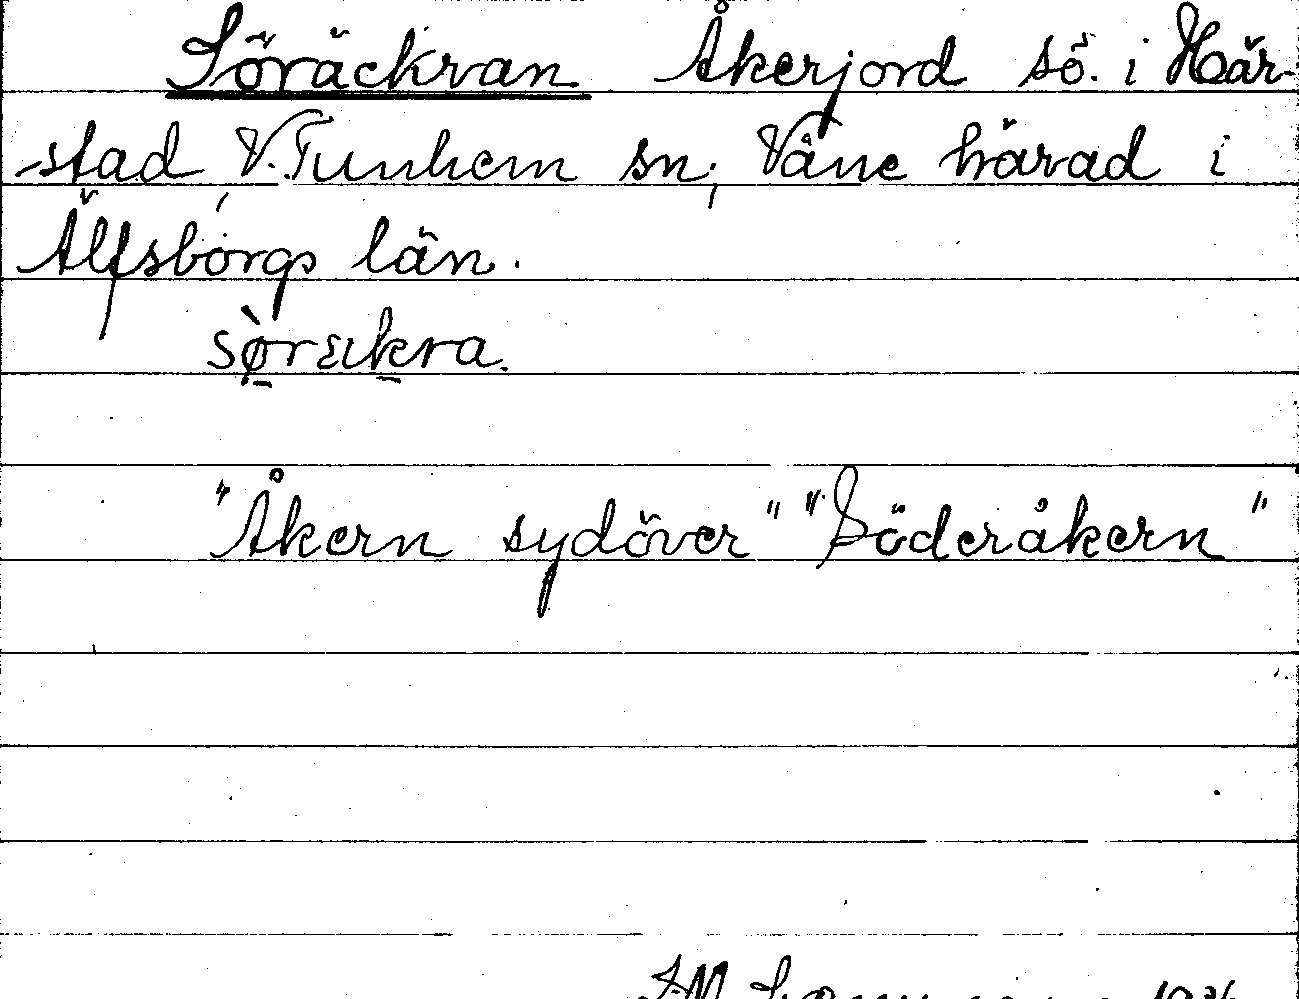 Söräckran Åkerjord sö. i Här-
stad, V. Tunhem sn; Väne härad i
Älfsborgs län.
sø̀rɛkra.
"Åkern sydöver" "Söderåkern"